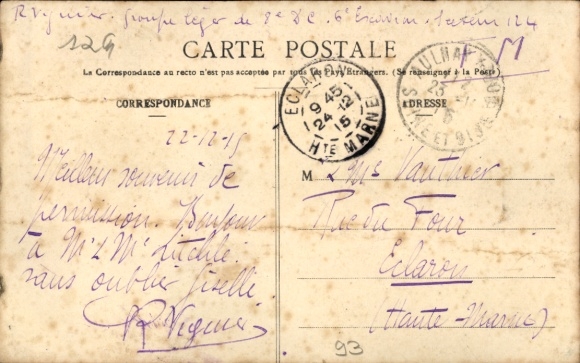 R Vignier. groupe léger de 8e D C. 6e Escadron. Secteur 124
129
F M
CARTE POSTALE
La Correspondance au recto n'est pas acceptée par tous les Pays Etrangers. (Se renseigner à la Poste)
CORRESPONDANCE
ADRESSE
ECLARON
9 45
24-12
15
HTE MARNE
AULNAY
23
SEINE ET OISE
22-12-15
Meilleur souvenir de
permission. Bonjour
à Mr & Me
sans oublier Giselle.
R Vignier
M & Me Vautrier
Rue du Four
Eclaron
(Haute-Marne)
93